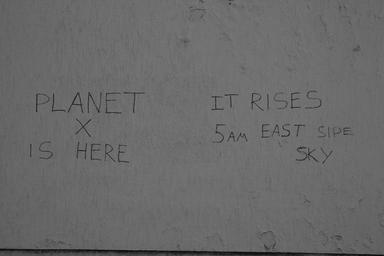 PLANET
X
IS HERE
IT RISES
5AM EAST SIDE
SKY